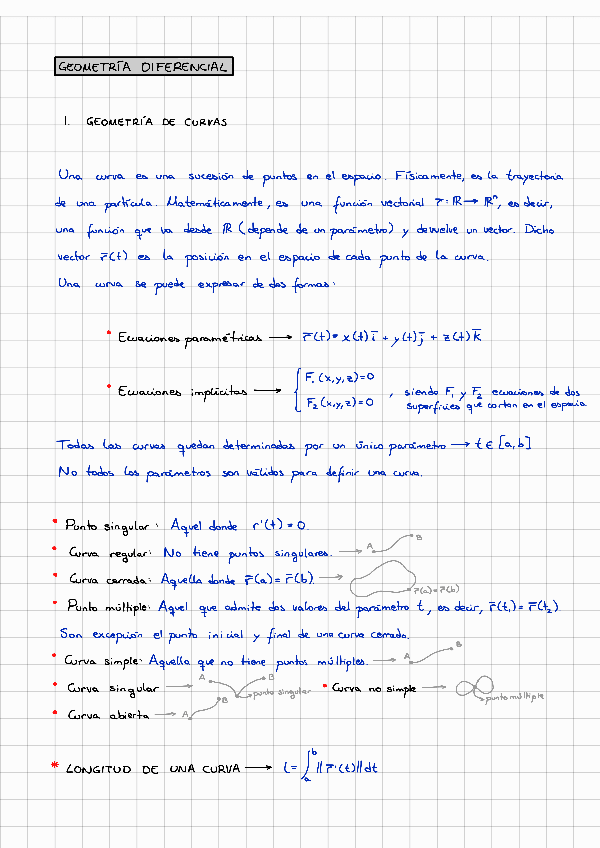 GEOMETRÍA DIFERENCIAL
1. GEOMETRÍA DE CURVAS
Una curva es una sucesión de puntos en el espacio. Físicamente, es la trayectoria
de una partícula. Matemáticamente, es una función vectorial r̄: ℝ → ℝⁿ, es decir,
una función que va desde ℝ (depende de un parámetro) y devuelve un vector. Dicho
vector r̄(t) es la posición en el espacio de cada punto de la curva.
Una curva se puede expresar de dos formas:
* Ecuaciones paramétricas → r̄(t) = x(t) i̅ + y(t) j̅ + z(t) k̅
* Ecuaciones implícitas → { F₁(x,y,z)=0
F₂(x,y,z)=0 , siendo F₁ y F₂ ecuaciones de dos
superficies que cortan en el espacio
Todas las curvas quedan determinadas por un único parámetro → t ∈ [a,b]
No todos los parámetros son válidos para definir una curva.
* Punto singular: Aquel donde r'(t) = 0.
* Curva regular: No tiene puntos singulares. → A B
* Curva cerrada: Aquella donde r̄(a) = r̄(b). → r̄(a)=r̄(b)
* Punto múltiple: Aquel que admite dos valores del parámetro t, es decir, r̄(t₁) = r̄(t₂)
Son excepción el punto inicial y final de una curva cerrada.
* Curva simple: Aquella que no tiene puntos múltiples. → A B
* Curva singular → A B punto singular * Curva no simple → punto múltiple
* Curva abierta → A B
* LONGITUD DE UNA CURVA → L = ∫ₐᵇ ||r̄'(t)|| dt